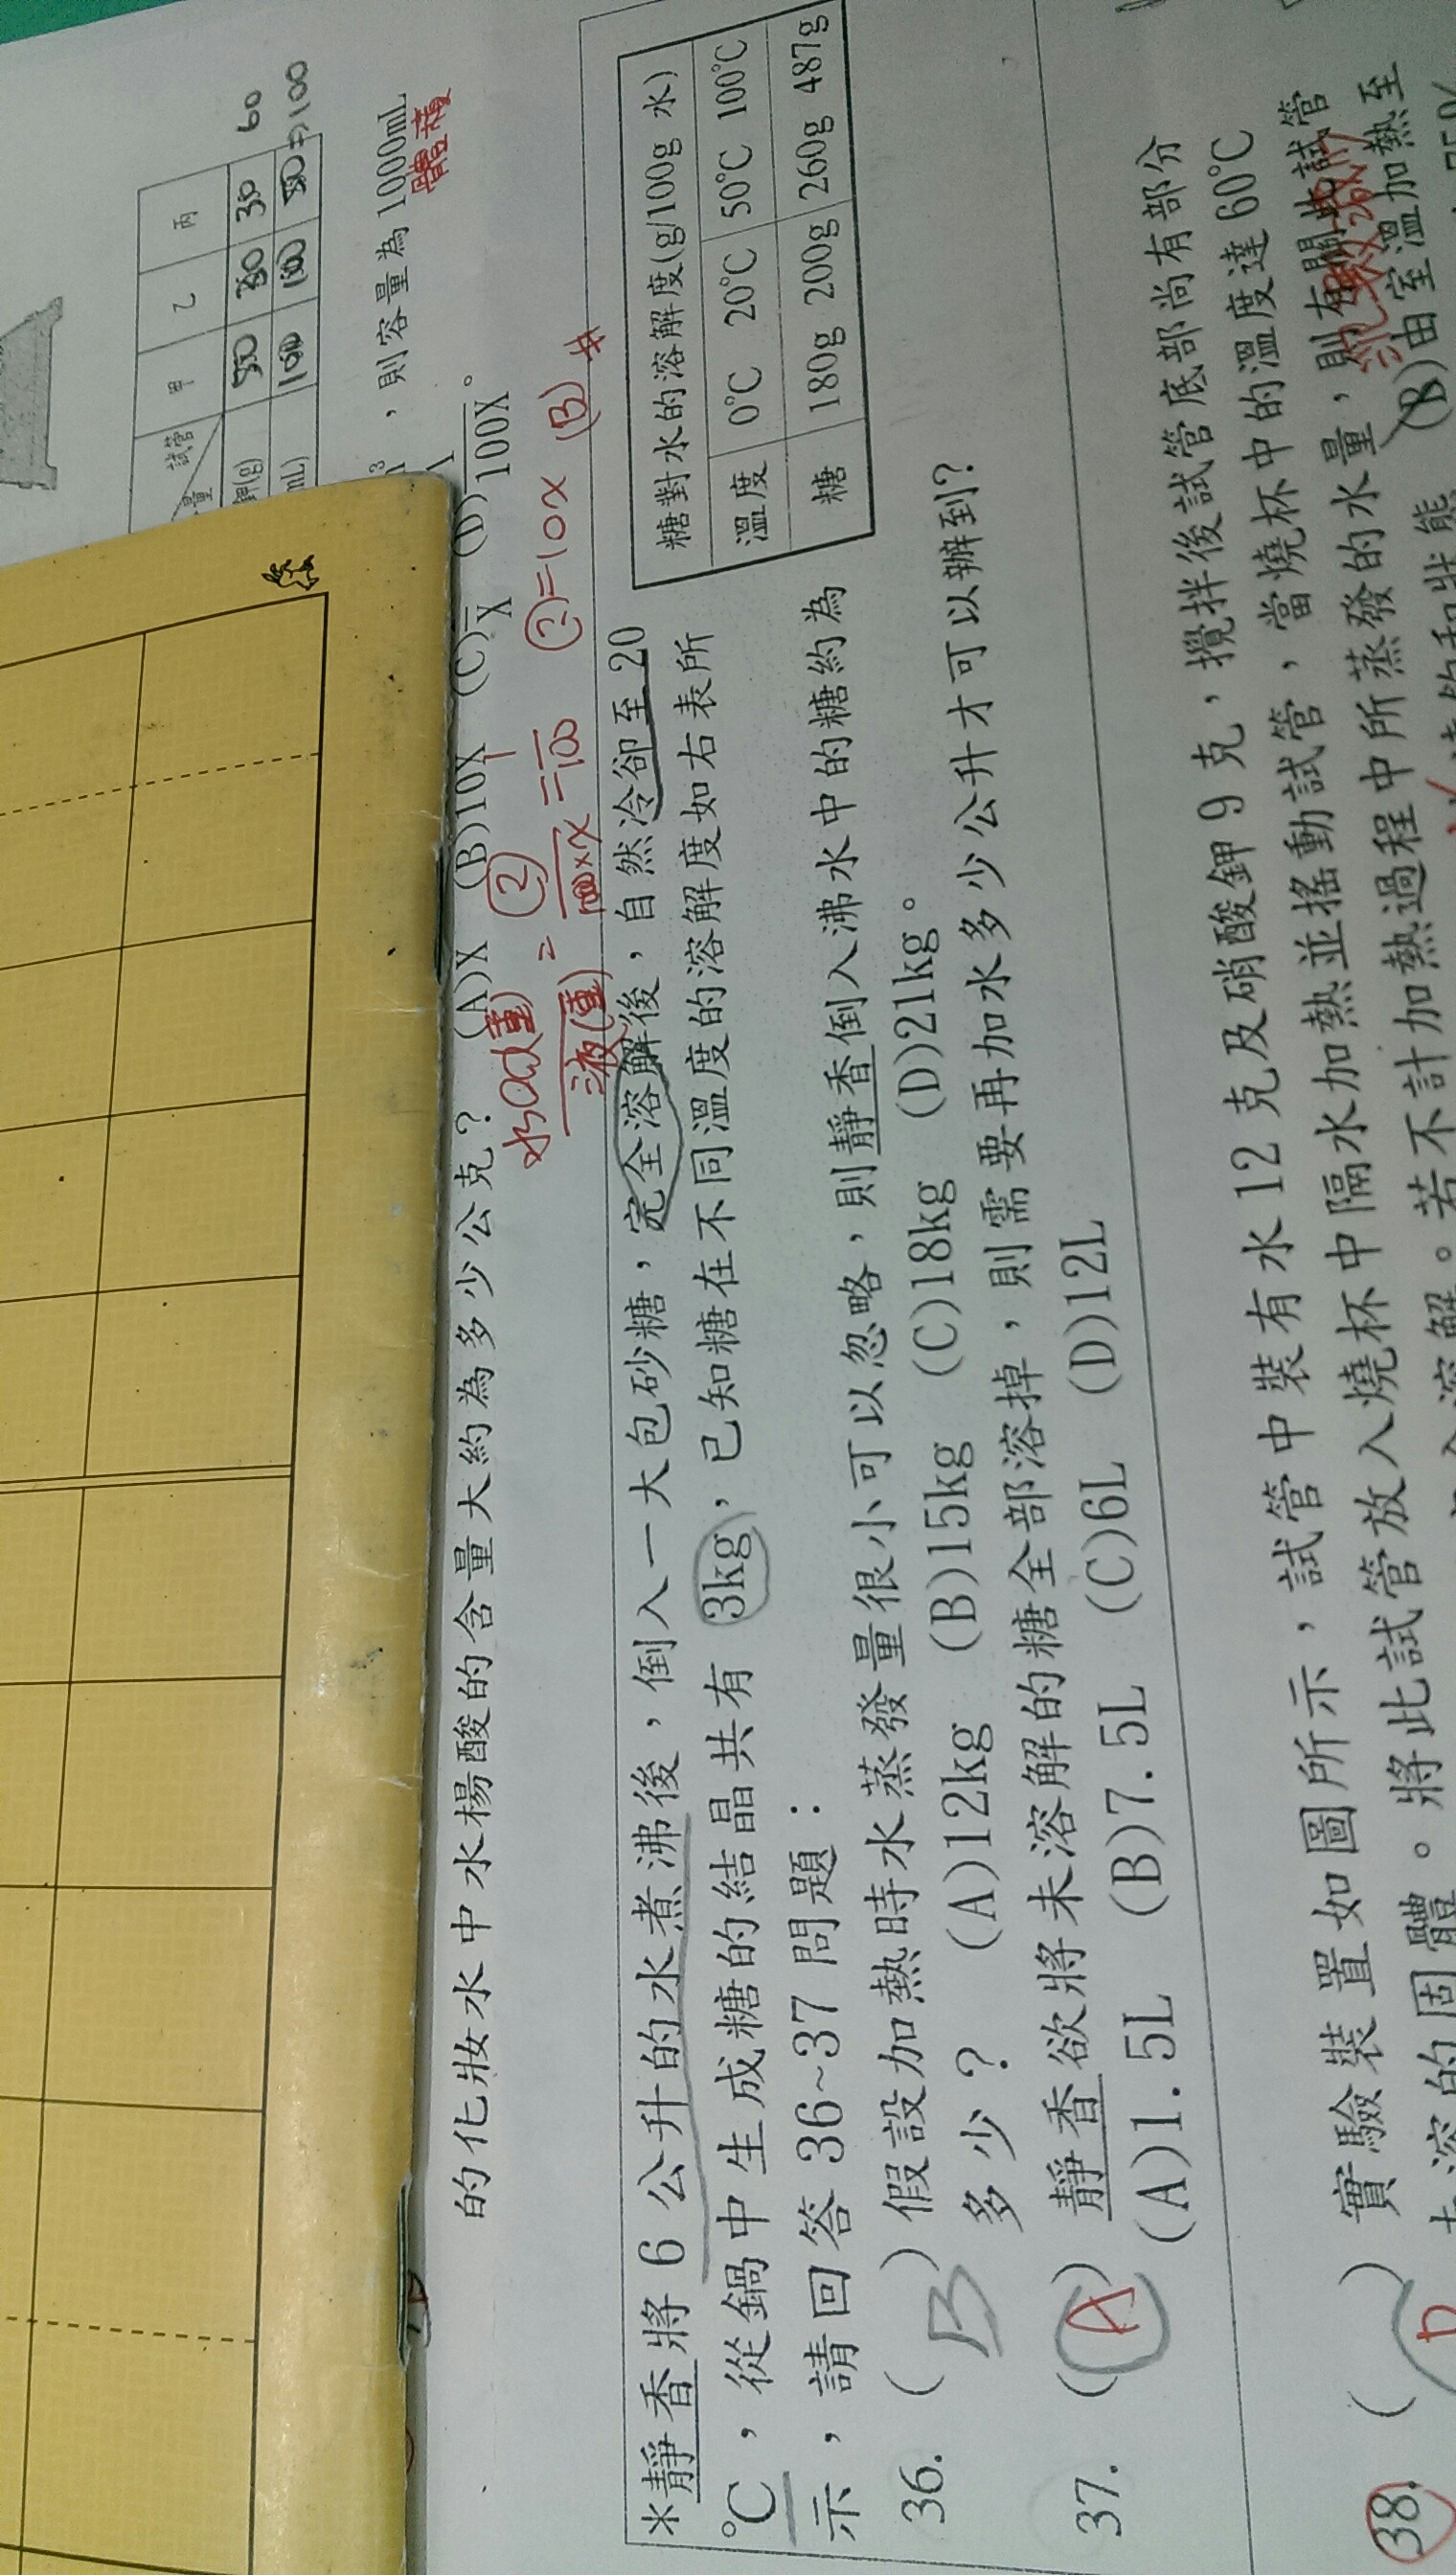 試管 甲 乙 丙
量
鉀(g) 50 30 30 60
mL) 100 100 50 ⇒100
,則容量為1000mL
體積
的化妝水中水楊酸的含量大約為多少公克? (A)X (B)10X (C) (D)
X 100X。
水(ad重) ②
液(重) = 100×X = 100 ②=10X (B)#
*靜香將 6 公升的水煮沸後,倒入一大包砂糖,完全溶解後,自然冷卻至 20
℃,從鍋中生成糖的結晶共有 3kg,已知糖在不同溫度的溶解度如右表所
示,請回答 36~37 問題:
糖對水的溶解度(g/100g 水)
溫度 0℃ 20℃ 50℃ 100℃
糖 180g 200g 260g 487g
36. ( B )假設加熱時水蒸發量很小可以忽略,則靜香倒入沸水中的糖約為
多少? (A)12kg (B)15kg (C)18kg (D)21kg。
37. ( A )靜香欲將未溶解的糖全部溶掉,則需要再加水多少公升才可以辦到?
(A)1.5L (B)7.5L (C)6L (D)12L
38. ( )實驗裝置如圖所示,試管中裝有水 12 克及硝酸鉀 9 克,攪拌後試管底部尚有部分
D 未溶的固體。將此試管放入燒杯中隔水加熱並搖動試管,當燒杯中的溫度達 60℃
溶解。若不計加熱過程中所蒸發的水量,則有關此試管
飽和狀態 (B)由室溫加熱至